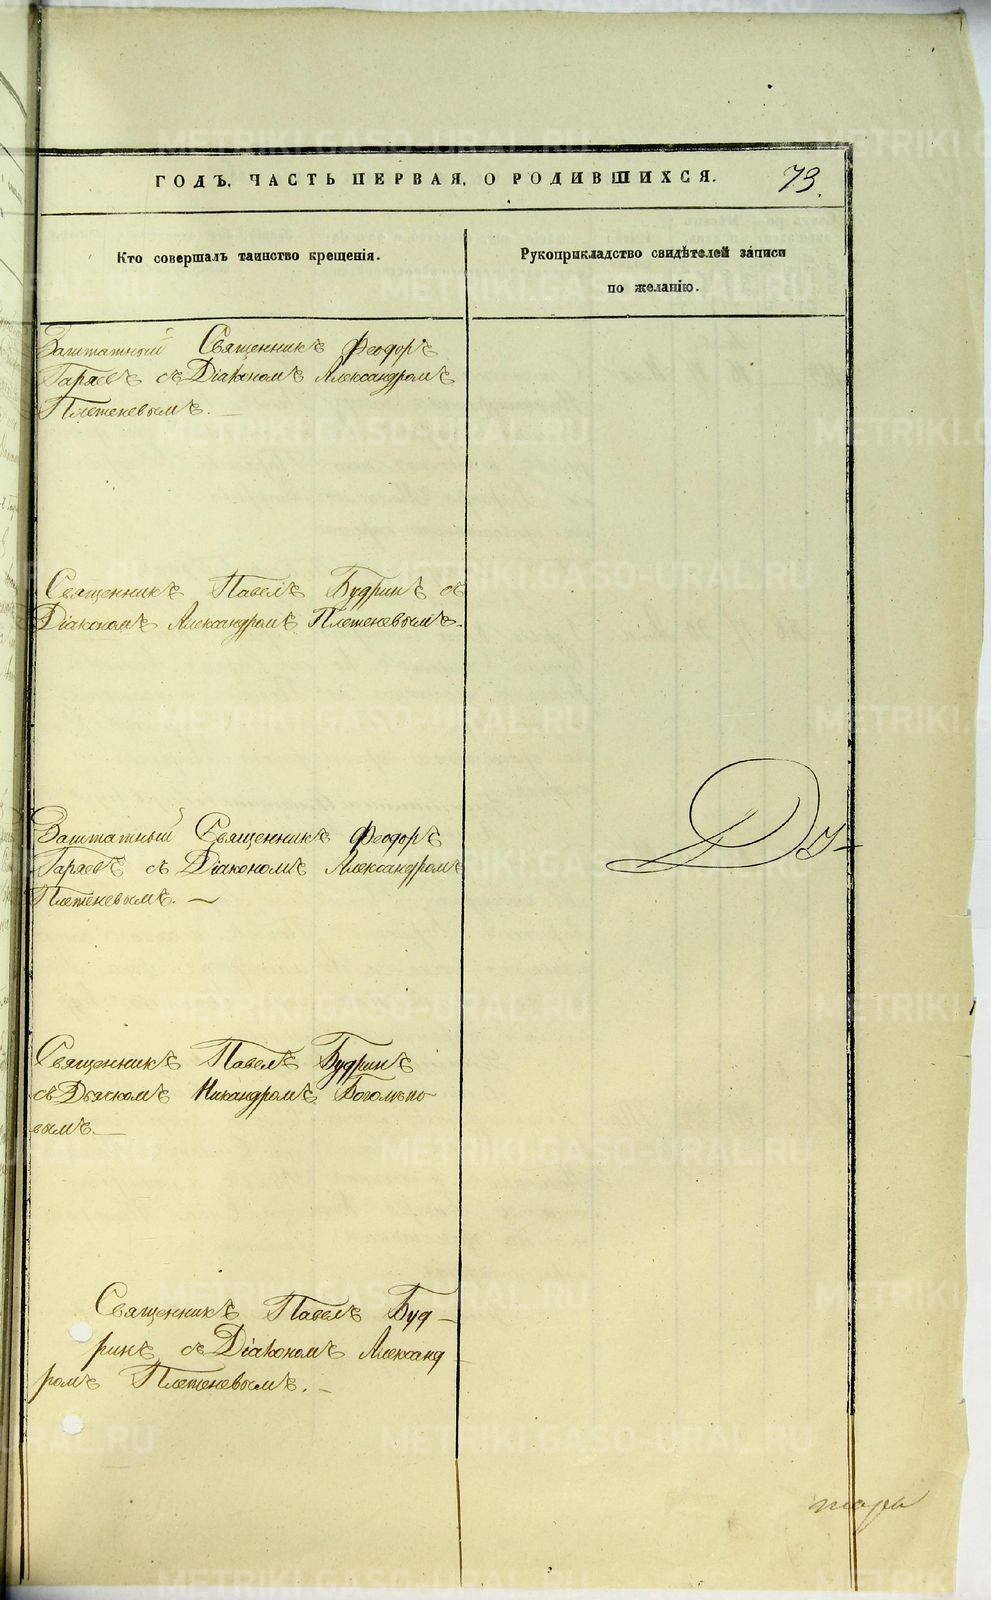 ГОДЪ, ЧАСТЬ ПЕРВАЯ, О РОДИВШИХСЯ.
73.
Кто совершалъ таинство крещенія.
Рукоприкладство свидѣтелей записи
по желанію.
Заштатный Священникъ Феодоръ
Гаряевъ съ Діакономъ Александромъ
Плетеневымъ.
Священникъ Павелъ Будринъ съ
Діакономъ Александромъ Плетеневымъ.
Заштатный Священникъ Феодоръ
Гаряевъ съ Діакономъ Александромъ
Плетеневымъ.
Священникъ Павелъ Будринъ
съ Дьякомъ Никандромъ Боголѣпо-
вымъ.
Священникъ Павелъ Буд-
ринъ съ Діакономъ Александ
ромъ Плетеневымъ.
METRIKI.GASO-URAL.RU